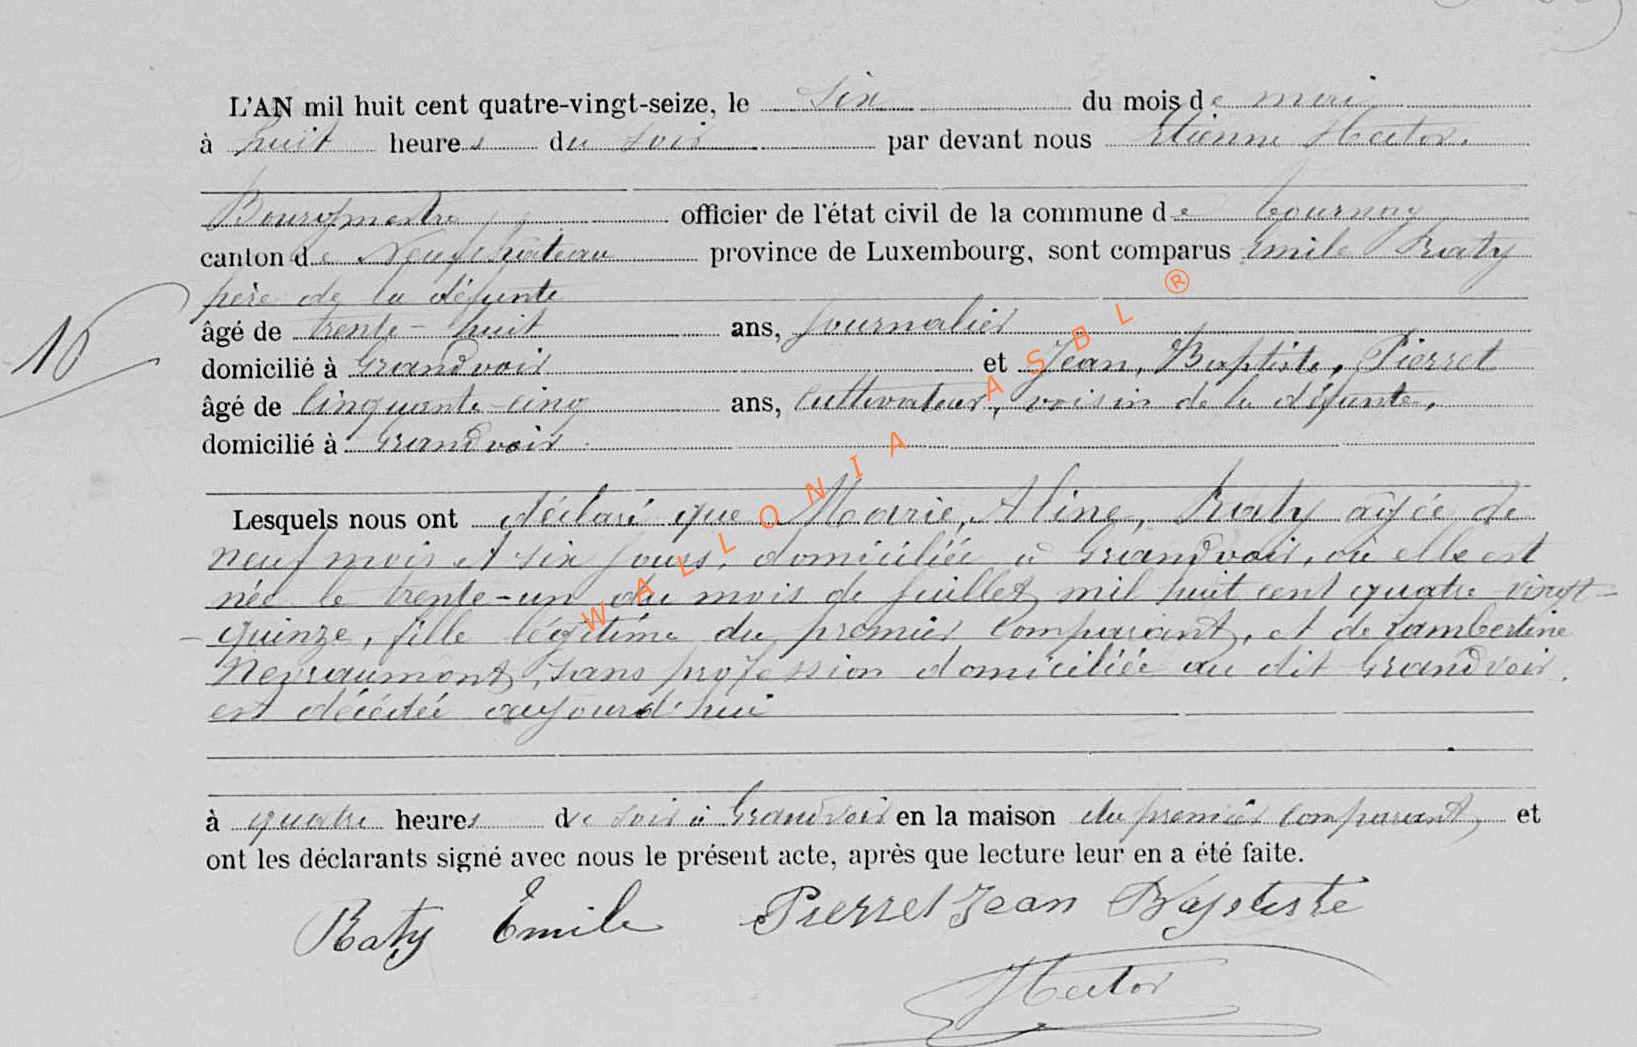 L'AN mil huit cent quatre-vingt-seize, le six du mois de mai
à huit heures du soir par devant nous Etienne Hector,
Bourgmestre officier de l'état civil de la commune de Tournay
canton de Neufchâteau province de Luxembourg, sont comparus Emile Raty
père de la défunte
16
âgé de trente-huit ans, journalier
domicilié à Grandvoir et Jean, Baptiste, Pierret
âgé de cinquante-cinq ans, cultivateur, voisin de la défunte,
domicilié à Grandvoir
Lesquels nous ont déclaré que Marie, Aline, Raty âgée de
neuf mois et six jours, domiciliée à Grandvoir, où elle est
née le trente-un du mois de juillet mil huit cent quatre vingt-
-quinze, fille légitime du premier comparant, et de Lambertine
Nevraumont, sans profession domiciliée au dit Grandvoir,
est décédée aujourd'hui
à quatre heures de soir à Grandvoir en la maison du premier comparant, et
ont les déclarants signé avec nous le présent acte, après que lecture leur en a été faite.
Raty Emile Pierret Jean Baptiste
Hector
WALLONIA ASBL ®